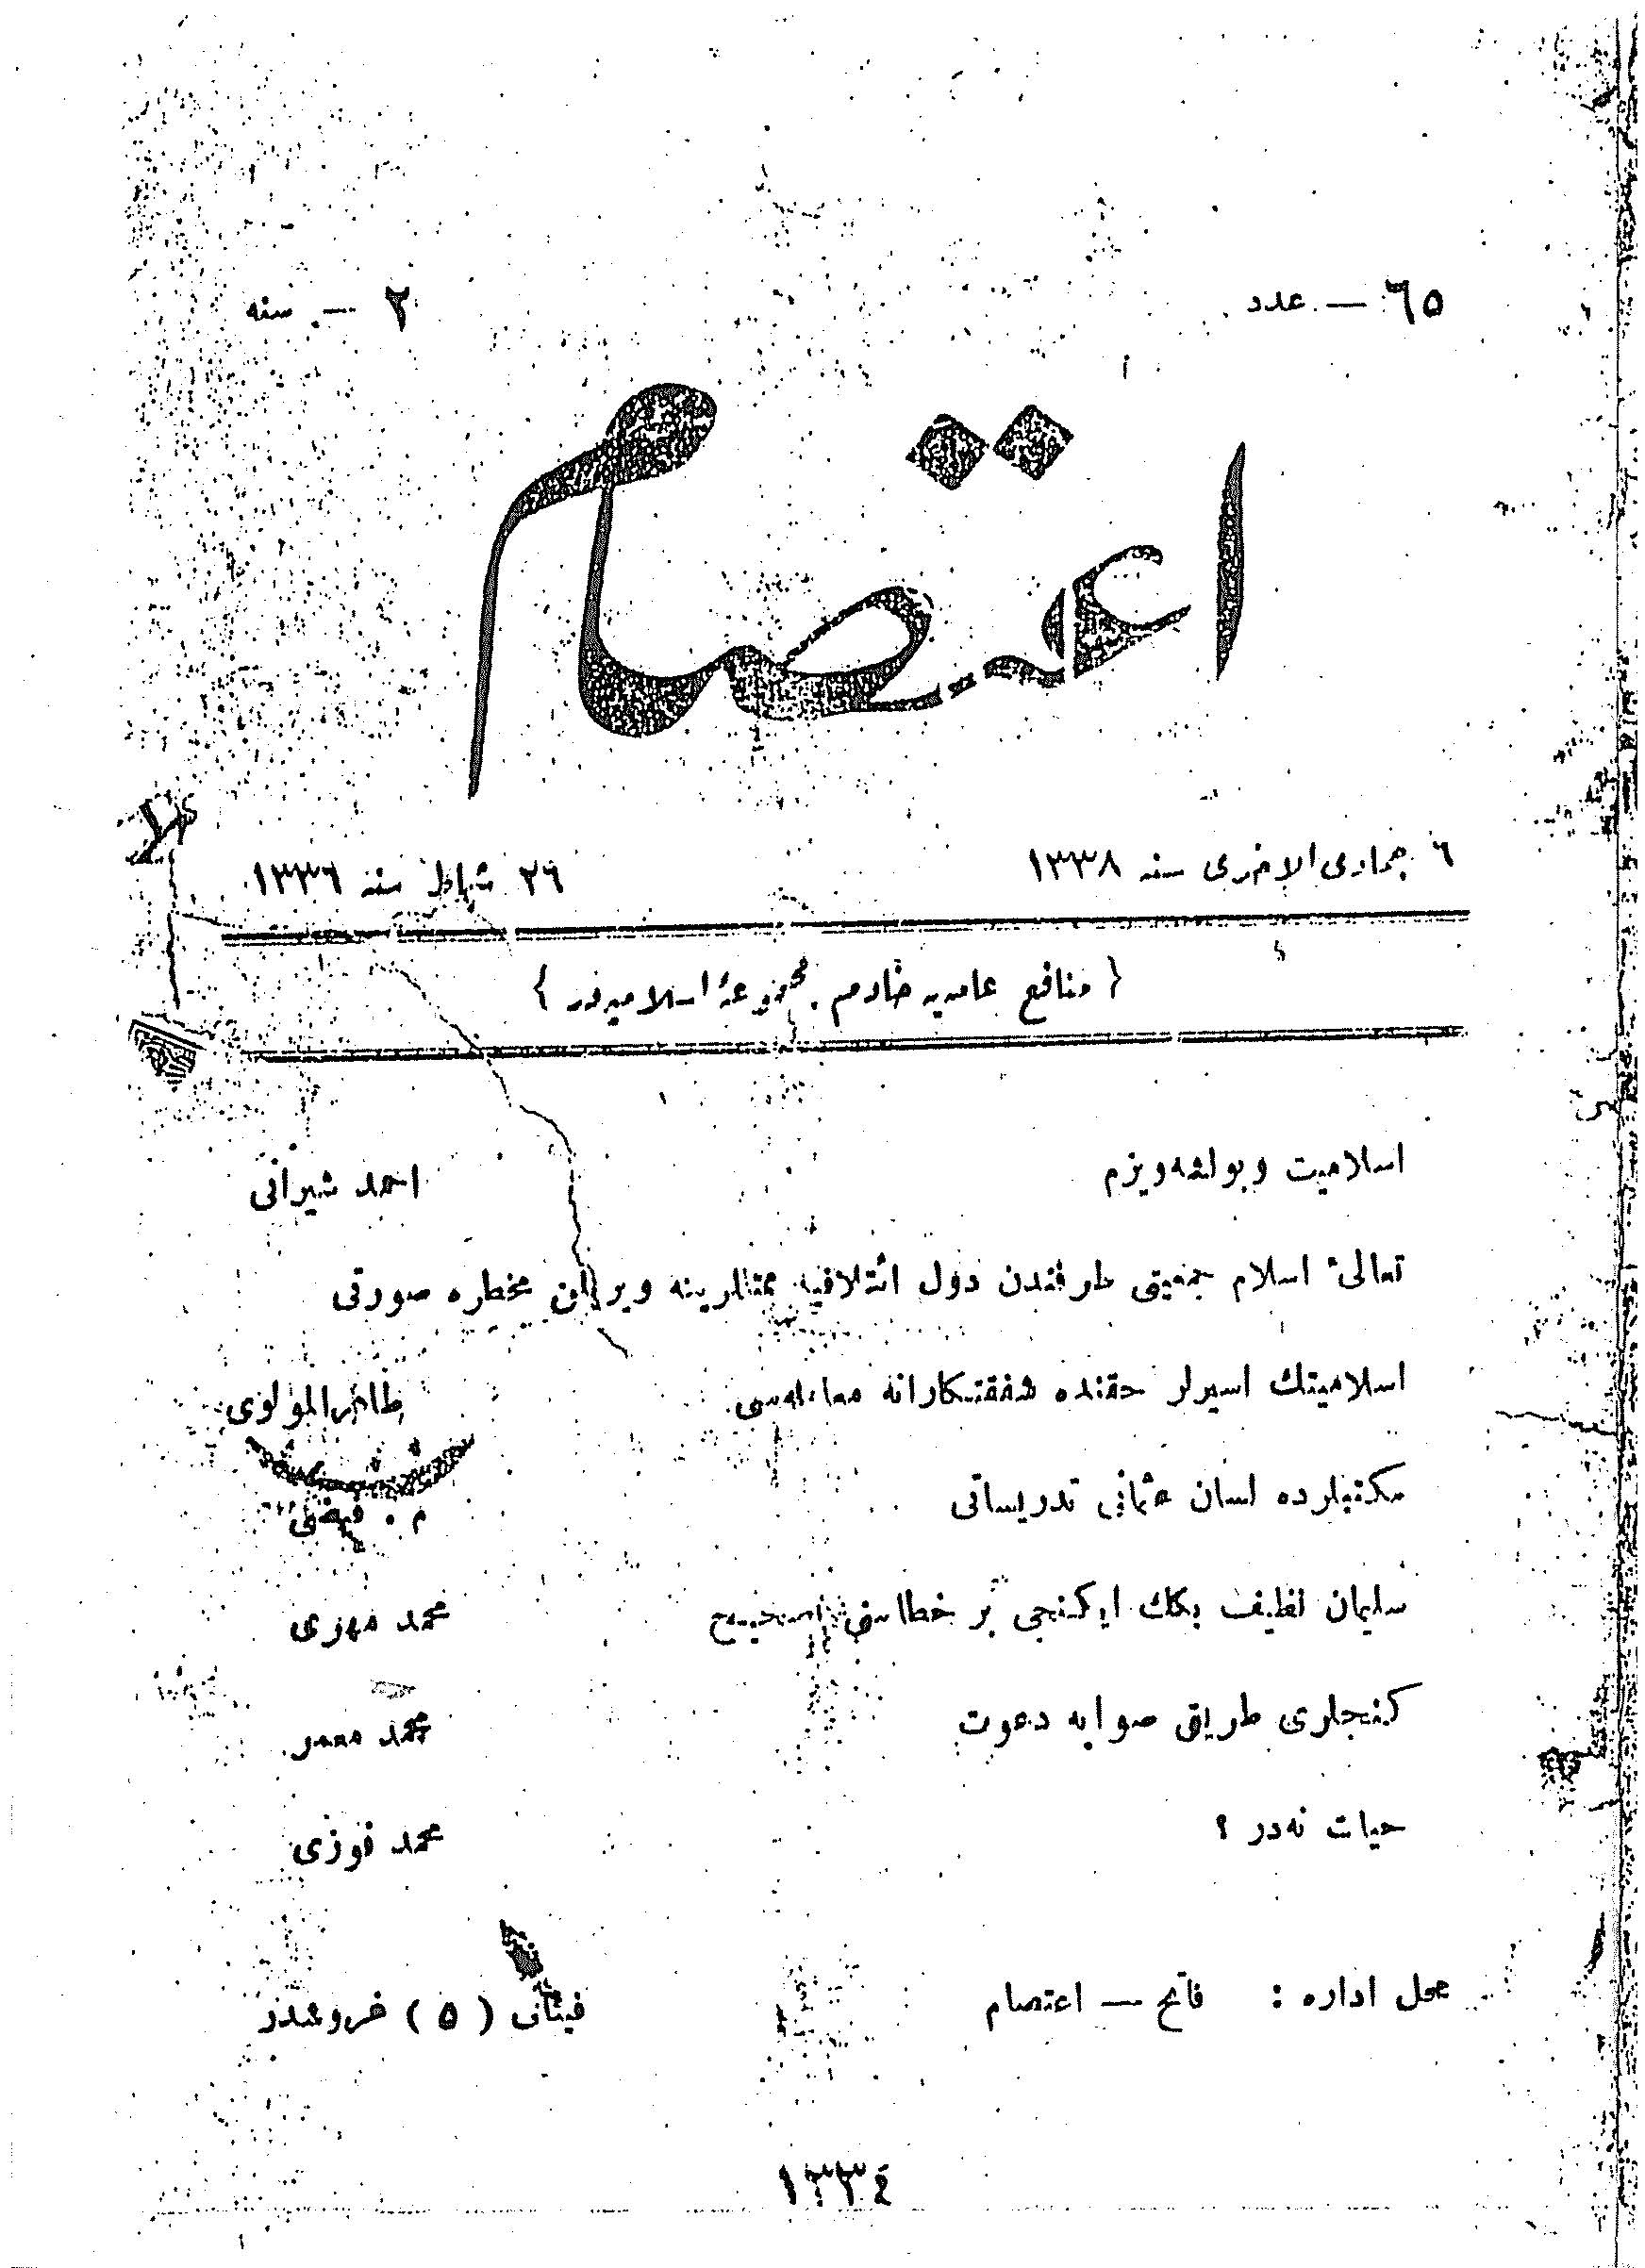 ٦٥ — عدد
٢ — سنه
اعتصام
٦ جمادى الاخرى سنه ١٣٣٨
٢٦ شباط سنه ١٣٣٦
{ منافع عامه‌يه خادم مجموعهٔ اسلاميه‌در }
اسلاميت و بولشه‌ويزم احمد شيرانى
تعالىٔ اسلام جمعيتى طرفندن دول ائتلافيه ممثللرينه ويريلن مخطره صورتى
اسلاميتك اسيرلر حقنده شفقتكارانه معامله‌سى طاهر المولوى
مكتبلرده لسان عثمانى تدريساتى م . فيضى
سليمان نظيف بكك ايكنجى بر خطاسنى تصحيح محمد مهرى
كنجلرى طريق صوابه دعوت محمد معمر
حيات نه‌در ؟ محمد فوزى
محل اداره : فاتح — اعتصام
فيئاتى ( ٥ ) غروشدر
١٣٣٤